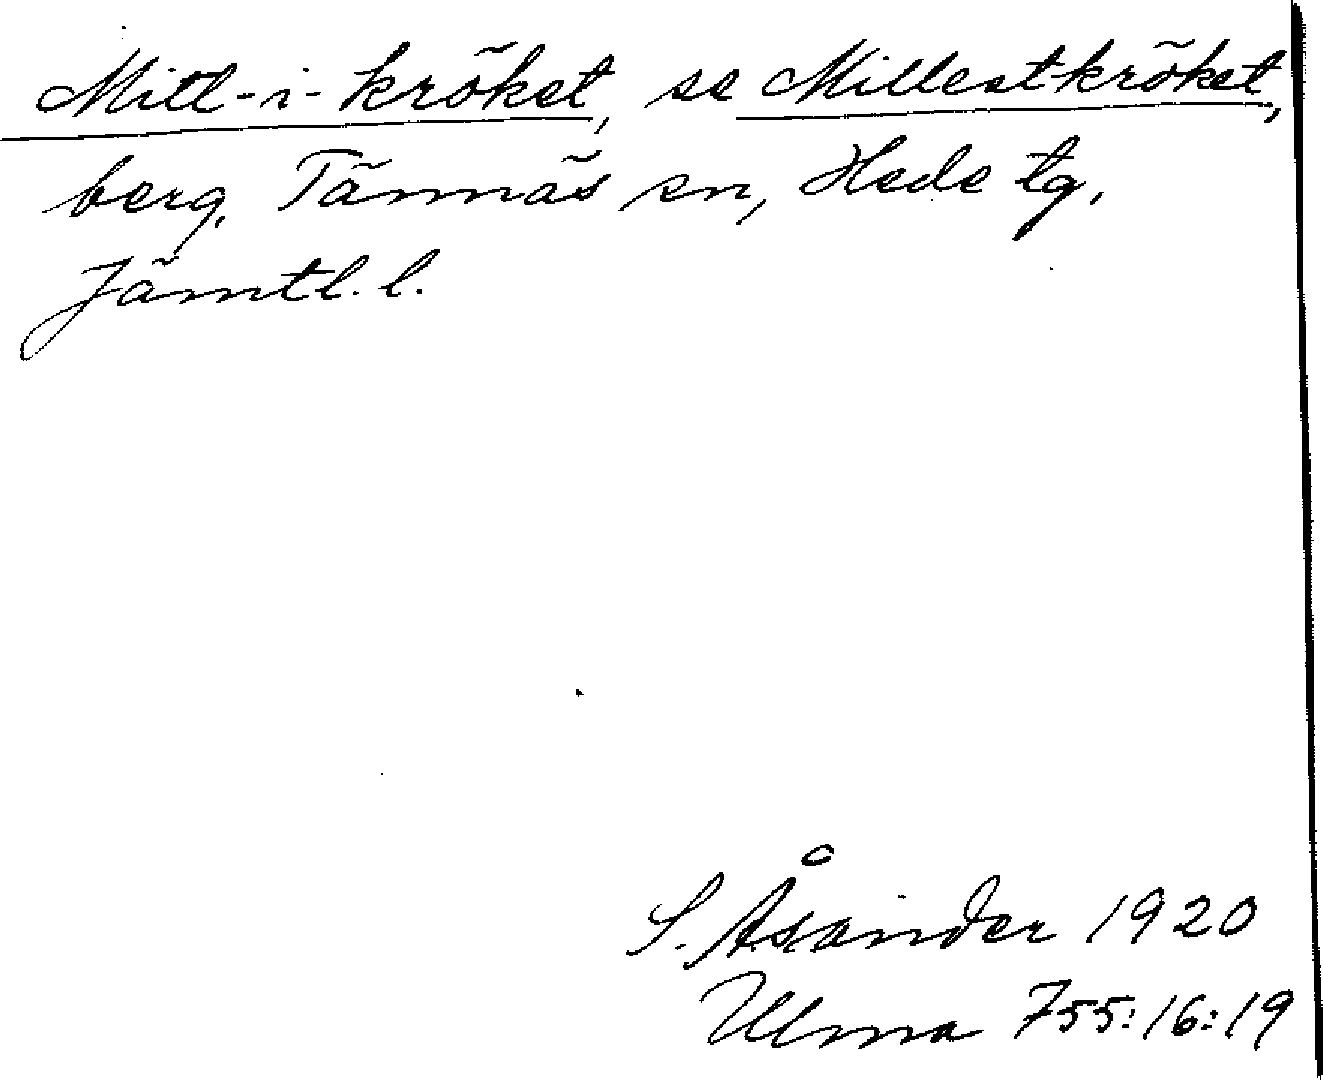 Mitl-i-kröket, se Millestkröket,
berg, Tännäs sn, Hede tg,
Jämtl. l.
S. Åsander 1920
Ulma 755:16:19